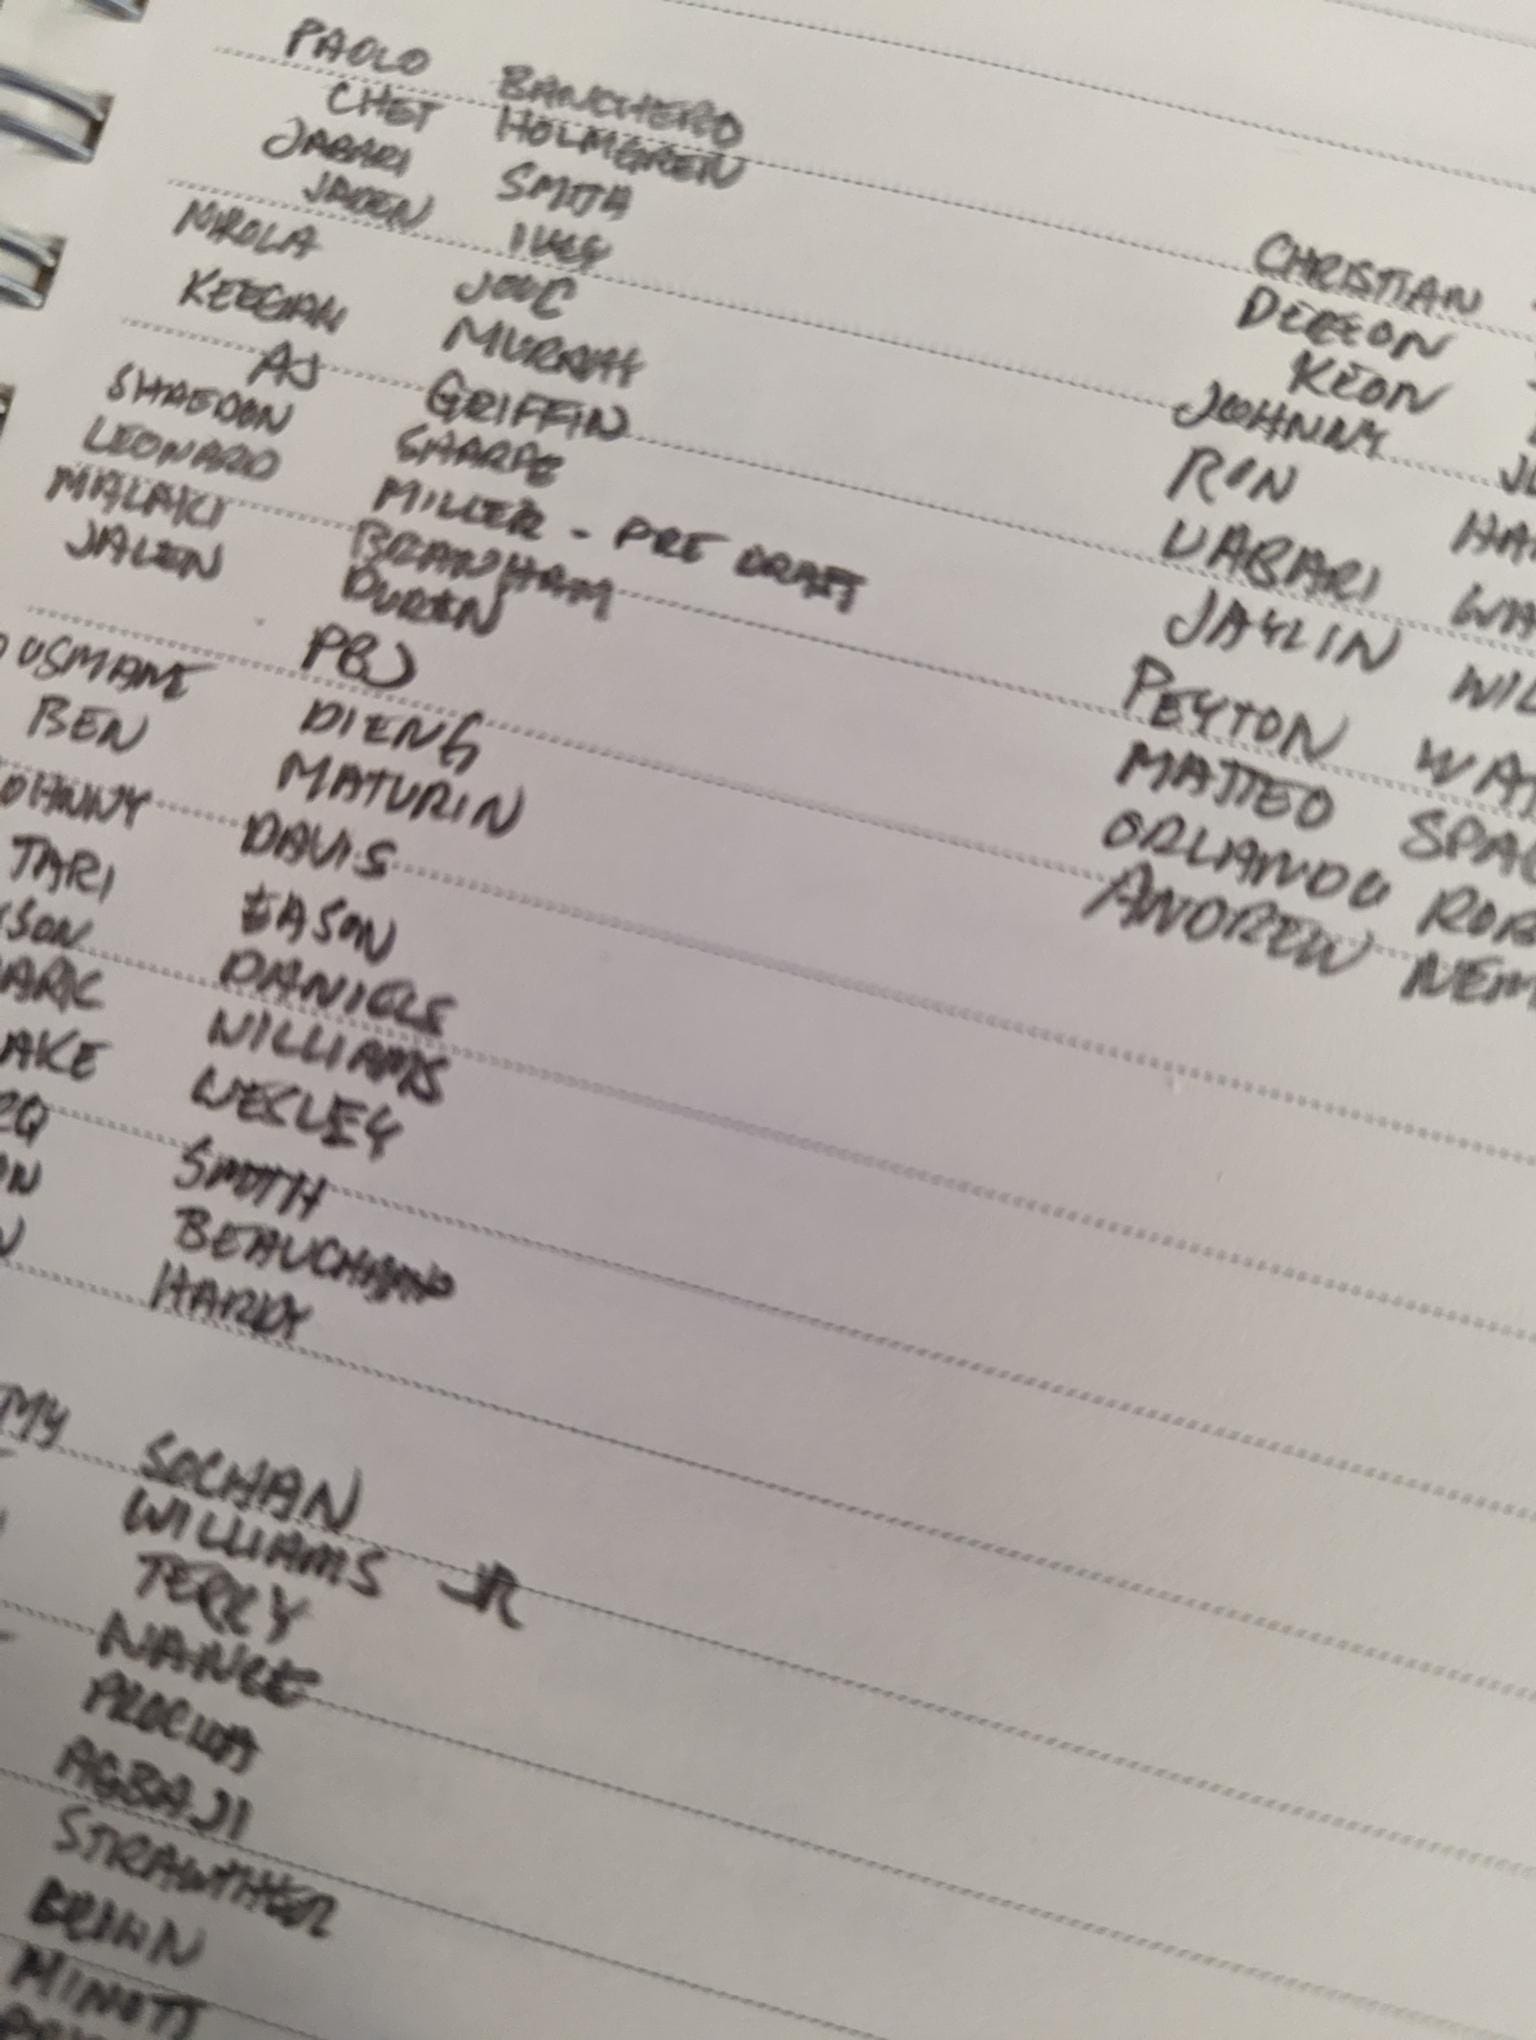 PAOLO BANCHERO
CHET HOLMGREN
JABARI SMITH
JADEN IVEY
NIKOLA JOVIC
KEEGAN MURRAY
AJ GRIFFIN
SHAEDON SHARPE
LEONARD MILLER - PRE DRAFT
MALAKI BRANHAM
JALEN DUREN
PBJ
OUSMANE DIENG
BEN MATURIN
OHNNY DAVIS
TARI EASON
SON DANIELS
ARK WILLIAMS
AKE WESLEY
RQ SMITH
ON BEAUCHAMP
N HARDY
MY SOCHAN
WILLIAMS JR
TERRY
NANCE
PROCIDA
AGBAJI
STRAWTHER
BROWN
MINOTT
CHRISTIAN
DEREON
KEON
JOHNNY JU
RON HA
VABARI WA
JAYLIN WIL
PEYTON WAT
MATTEO SPAG
ORLANDO ROB
ANDREW NEM